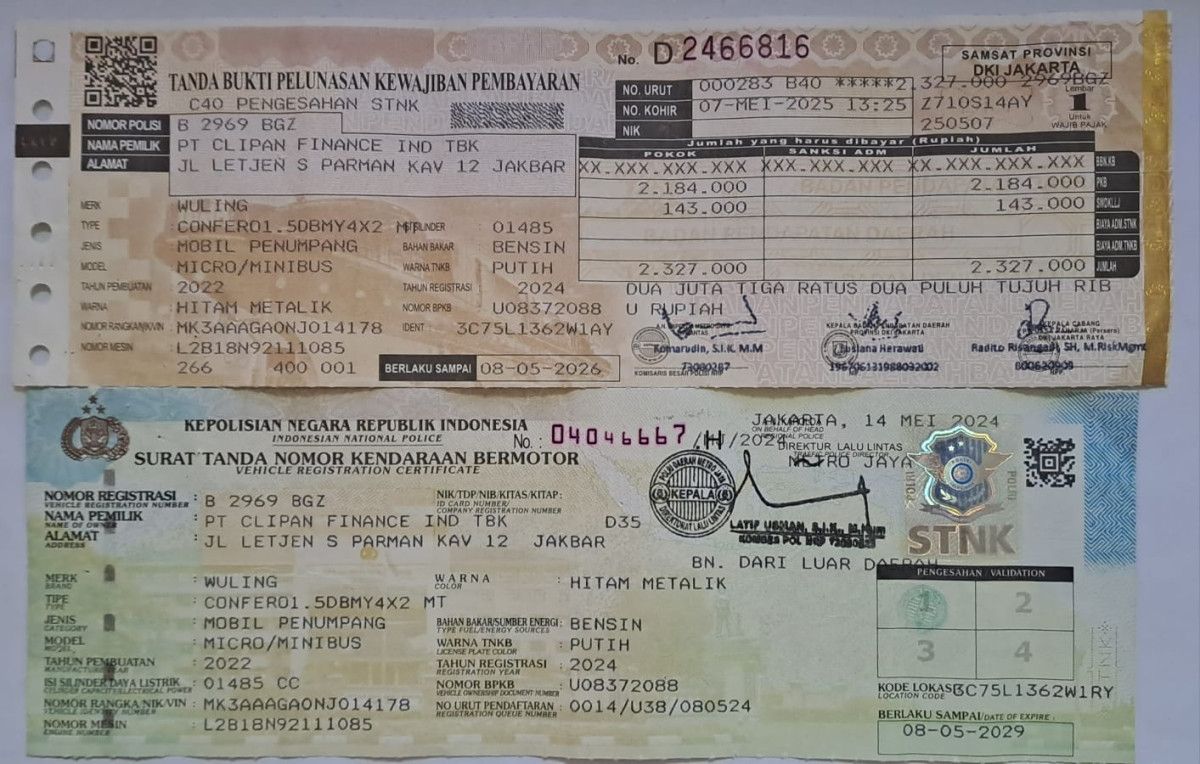 No. D 2466816
SAMSAT PROVINSI
DKI JAKARTA
TANDA BUKTI PELUNASAN KEWAJIBAN PEMBAYARAN
C40 PENGESAHAN STNK
NO. URUT 000283 B40 *****2.327.000 2969BGZ
NO. KOHIR 07-MEI-2025 13:25 Z710S14AY
NIK 250507
Lembar
1
Untuk
WAJIB PAJAK
NOMOR POLISI B 2969 BGZ
NAMA PEMILIK PT CLIPAN FINANCE IND TBK
ALAMAT JL LETJEN S PARMAN KAV 12 JAKBAR
Jumlah yang harus dibayar (Rupiah)
POKOK SANKSI ADM JUMLAH
XX.XXX.XXX.XXX XX.XXX.XXX.XXX XX.XXX.XXX.XXX BBN.KB
2.184.000 2.184.000 PKB
143.000 143.000 SWDKLLJ
BIAYA ADM.STNK
BIAYA ADM.TNKB
2.327.000 2.327.000 JUMLAH
DUA JUTA TIGA RATUS DUA PULUH TUJUH RIB
U RUPIAH
MERK WULING
TYPE : CONFERO1.5DBMY4X2 MT ISI SILINDER : 01485
JENIS : MOBIL PENUMPANG BAHAN BAKAR : BENSIN
MODEL : MICRO/MINIBUS WARNA TNKB : PUTIH
TAHUN PEMBUATAN : 2022 TAHUN REGISTRASI : 2024
WARNA : HITAM METALIK NOMOR BPKB : U08372088
NOMOR RANGKA/NIK/VIN : MK3AAAGA0NJ014178 IDENT : 3C75L1362W1AY
NOMOR MESIN : L2B18N92111085
266 400 001 BERLAKU SAMPAI 08-05-2026
KEPALA BADAN PENDAPATAN DAERAH
PROVINSI DKI JAKARTA
KEPALA CABANG
DKI JAKARTA RAYA
Komarudin, S.I.K, M.M
Lusiana Herawati
Radito Risangadi, SH, M.RiskMgmt
73080267
196706131988032002
KEPOLISIAN NEGARA REPUBLIK INDONESIA
INDONESIAN NATIONAL POLICE
No. : 04046667 /H/2024
SURAT TANDA NOMOR KENDARAAN BERMOTOR
VEHICLE REGISTRATION CERTIFICATE
JAKARTA, 14 MEI 2024
ON BEHALF OF HEAD
DIREKTUR LALU LINTAS
TRAFFIC POLICE DIRECTOR
METRO JAYA
POLDA METRO JAYA
KEPALA
DIREKTORAT LALU LINTAS
LATIF USMAN, S.I.K., M.Hum
STNK
NOMOR REGISTRASI : B 2969 BGZ
VEHICLE REGISTRATION NUMBER
NIK/TDP/NIB/KITAS/KITAP:
ID CARD NUMBER/
COMPANY REGISTRATION NUMBER
NAMA PEMILIK : PT CLIPAN FINANCE IND TBK D35
NAME OF OWNER
ALAMAT : JL LETJEN S PARMAN KAV 12 JAKBAR
ADDRESS
BN. DARI LUAR DAERAH
MERK : WULING
BRAND
WARNA : HITAM METALIK
COLOR
TIPE : CONFERO1.5DBMY4X2 MT
TYPE
JENIS : MOBIL PENUMPANG
CATEGORY
BAHAN BAKAR/SUMBER ENERGI : BENSIN
TYPE FUEL/ENERGY SOURCES
MODEL : MICRO/MINIBUS
MODEL
WARNA TNKB : PUTIH
LICENSE PLATE COLOR
TAHUN PEMBUATAN : 2022
MANUFACTURE YEAR
TAHUN REGISTRASI : 2024
REGISTRATION YEAR
ISI SILINDER/DAYA LISTRIK : 01485 CC
CYLINDER CAPACITY/ELECTRICAL POWER
NOMOR BPKB : U08372088
VEHICLE OWNERSHIP DOCUMENT NUMBER
NOMOR RANGKA/NIK/VIN : MK3AAAGA0NJ014178
VEHICLE IDENTITY NUMBER
NO URUT PENDAFTARAN : 0014/U38/080524
REGISTRATION QUEUE NUMBER
NOMOR MESIN : L2B18N92111085
ENGINE NUMBER
PENGESAHAN / VALIDATION
1 2
3 4
KODE LOKASI 3C75L1362W1RY
LOCATION CODE
BERLAKU SAMPAI/DATE OF EXPIRE :
08-05-2029